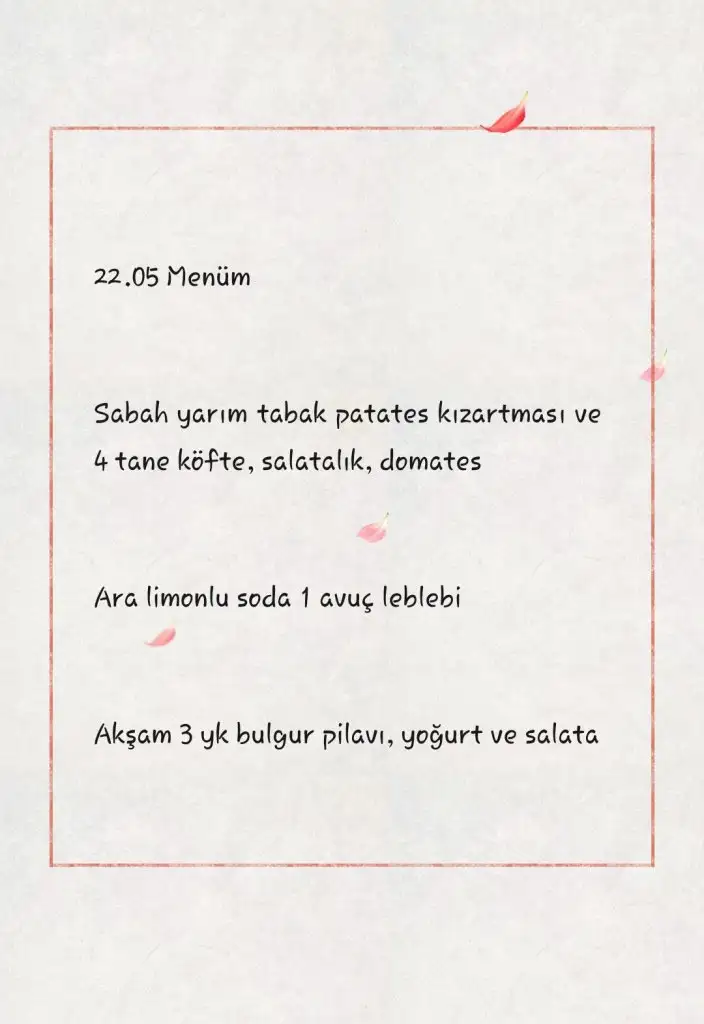 22.05 Menüm
Sabah yarım tabak patates kızartması ve
4 tane köfte, salatalık, domates
Ara limonlu soda 1 avuç leblebi
Akşam 3 yk bulgur pilavı, yoğurt ve salata